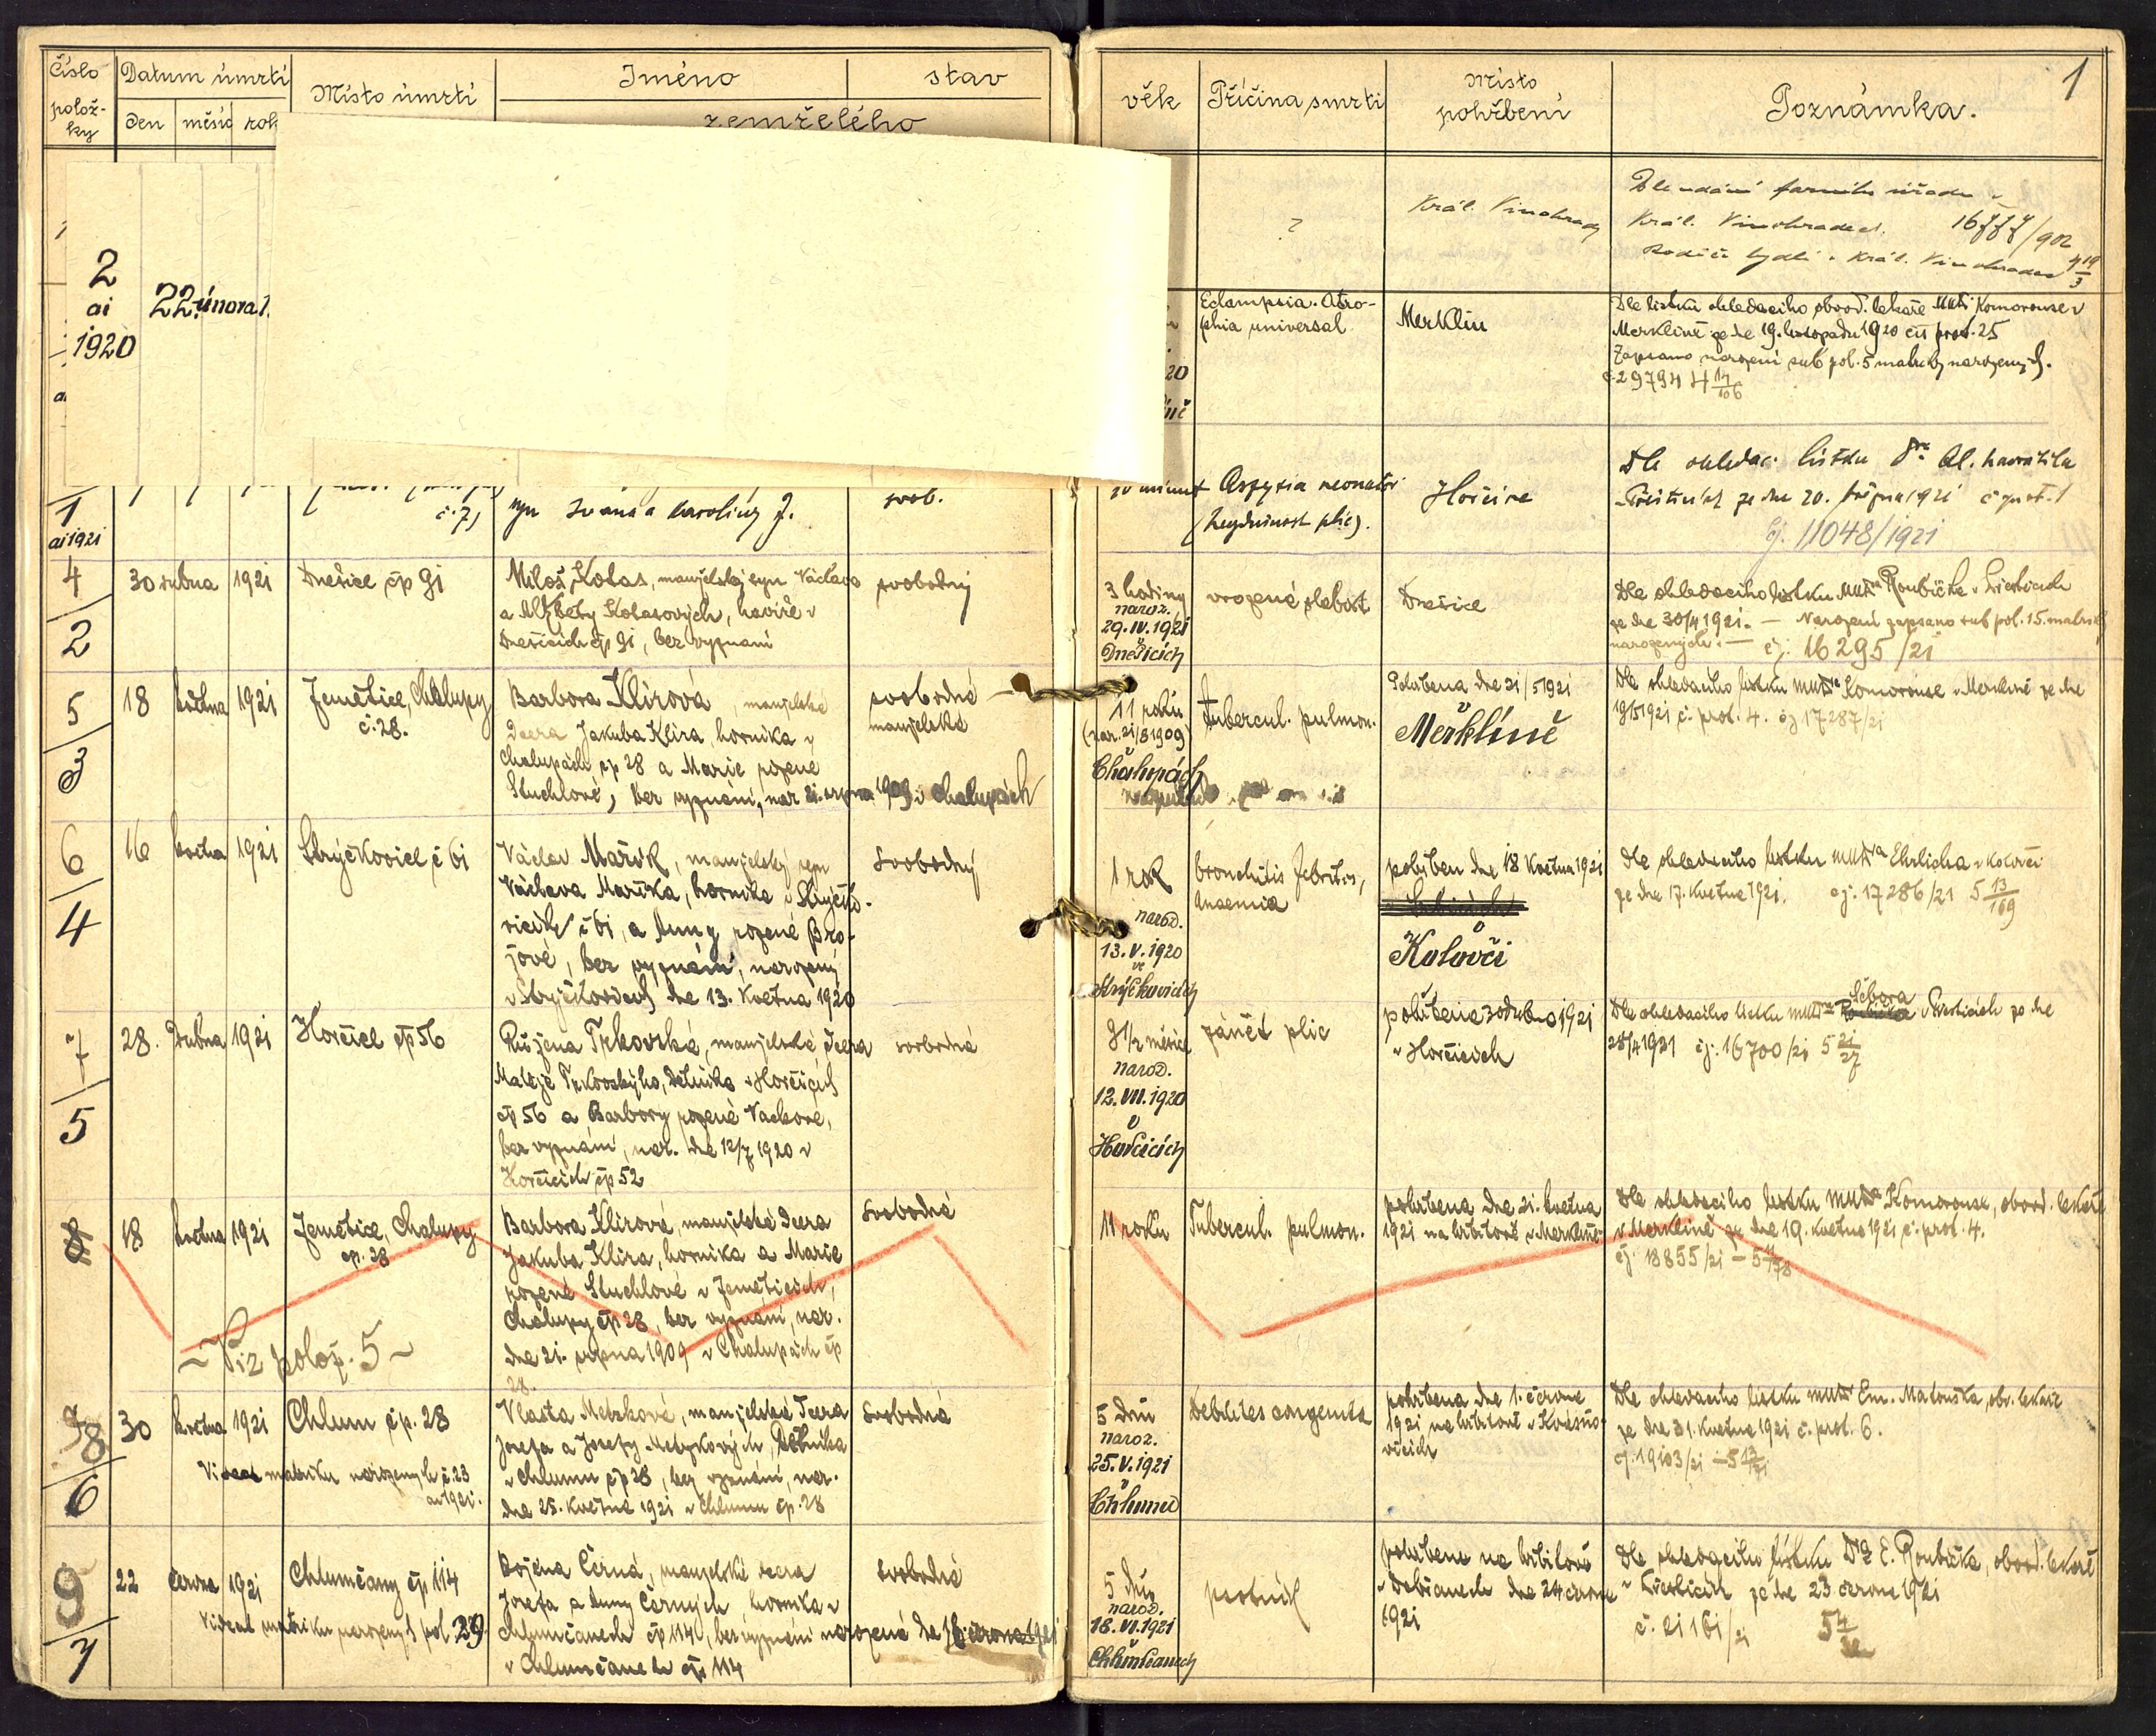 Číslo polož-ky
Datum úmrtí
den měsíc rok
Místo úmrtí
Jméno stav
zemřelého
věk
Příčina smrti
Místo pohřbení
Poznámka.
1
2
ai
1920
22. února 1.
?
Král. Vinohrady
Dle udání farního úřadu v
Král. Vinohradech.
Rodiče bydlí v Král. Vinohradech
Eclampsia. Atro-
phia universal.
Merklín
Dle lístku ohledacího obvod. lékaře MUDr Komorouse v
Merklíně ze dne 19. listopadu 1920 čís prot. 25
Zapsáno narození sub pol. 5 matriky narozených.
č. 29794
1
ai 1921
č. 7)
syn Ivana a Karolíny J.
svob.
Aspyxia neonatór
(nevzdušnost plic).
Horšice
Dle ohledac. lístku Dra Al. Navrátila
v Přešticích ze dne 20. března 1921 č. prot. 1
čj. 11048/1921
4
2
30 dubna 1921
Dnešice čp 91
Miloš Kolas, manželský syn Václava
a Alžběty Kolasových, havíře v
Dnešicích čp 91, bez vyznání
svobodný
3 hodiny
naroz.
29.IV.1921
v
Dnešicích
vrozená slabost
Dnešice
Dle ohledacího lístku MUDra Roubíčka v Přešticích
ze dne 30/4 1921. — Narození zapsáno sub pol. 15. matriky
narozených. — čj: 16295/21
5
3
18 května 1921
Zemětice, Chalupy
č. 28.
Barbora Klírová, manželská
dcera Jakuba Klíra, horníka v
Chalupách čp 28 a Marie rozené
Stuchlové, bez vyznání, nar 21. srpna 1909 v Chalupách
svobodná —
manželská
11 roků
(nar. 21/8 1909)
v
Chalupách
Tubercul. pulmon.
Pohřbena dne 21/5 1921
v
Merklíně
Dle ohledacího lístku MUDra Komorouse v Merklíně ze dne
19/5 1921 č. prot. 4. čj 17287/21
6
4
16 května 1921
Strýčkovice č 61
Václav Mařík, manželský syn
Václava Maříka, horníka v Strýčko-
vicích č 61, a Anny rozené Bro-
jové, bez vyznání, narozený
v Strýčkovicích dne 13. května 1920
svobodný
1 rok
narod.
13.V.1920
ve
Strýčkovicích
bronchitis febrilis,
anaemia
pohřben dne 18 května 1921
v
Kolovči
Dle ohledacího lístku MUDra Ehrlicha v Kolovči
ze dne 17. května 1921. čj: 17286/21 5 13/169
7
5
28. dubna 1921
Horšice čp 56
Růžena Trkovská, manželská dcera
Matěje Trkovského, dělníka v Horšicích
čp 56 a Barbory rozené Vackové,
bez vyznání, nar. dne 12/7 1920 v
Horšicích čp 52
svobodná
9 1/2 měsíce
narod.
12.VII.1920
v
Horšicích
zánět plic
pohřbena 30 dubna 1921
v Horšicích
Dle ohledacího lístku MUDra Šebora v Přešticích ze dne
28/4 1921 čj: 16700/21 5 21/27
8
18 května 1921
Zemětice, Chalupy
čp. 28
~ Viz polož. 5 ~
Barbora Klírová, manželská dcera
Jakuba Klíra, horníka a Marie
rozené Stuchlové v Zeměticích,
Chalupy čp 28, bez vyznání, nar.
dne 21. srpna 1909 v Chalupách čp
28.
svobodná
11 roků
Tubercul. pulmon.
pohřbena dne 21. května
1921 na hřbitově v Merklíně
Dle ohledacího lístku MUDra Komorouse, obvod. lékaře
v Merklíně ze dne 19. května 1921 č. prot. 4.
čj: 18855/21
8
6
30 května 1921
Chlum čp. 28
Videat matriku narozených č. 23
ai 1921.
Vlasta Metzková, manželská dcera
Josefa a Josefy Metzkových, dělníka
v Chlumu čp 28, bez vyznání, nar.
dne 25. května 1921 v Chlumu čp. 28
svobodná
5 dnů
naroz.
25.V.1921
v
Chlumu
Debilitas congenita
pohřbena dne 1. června
1921 na hřbitově v Kvasňo-
vicích
Dle ohledacího lístku MUDr Em. Matouška, obv. lékaře
ze dne 31. května 1921 č. prot. 6.
čj: 19103/21
9
7
22 června 1921
Chlumčany čp 114
Videat matriku narozených pol 29.
Božena Černá, manželská dcera
Josefa a Anny Černých, horníka v
Chlumčanech čp 114, bez vyznání narozená dne 18. června 1921
v Chlumčanech čp 114
svobodná
5 dnů
narod.
18.VI.1921
v
Chlumčanech
psotník
pohřbena na hřbitově
v Dobřanech dne 24 června
1921
Dle ohledacího lístku Dra E. Roubíčka, obvod. lékaře
v Přešticích ze dne 23 června 1921
č. 21161/21